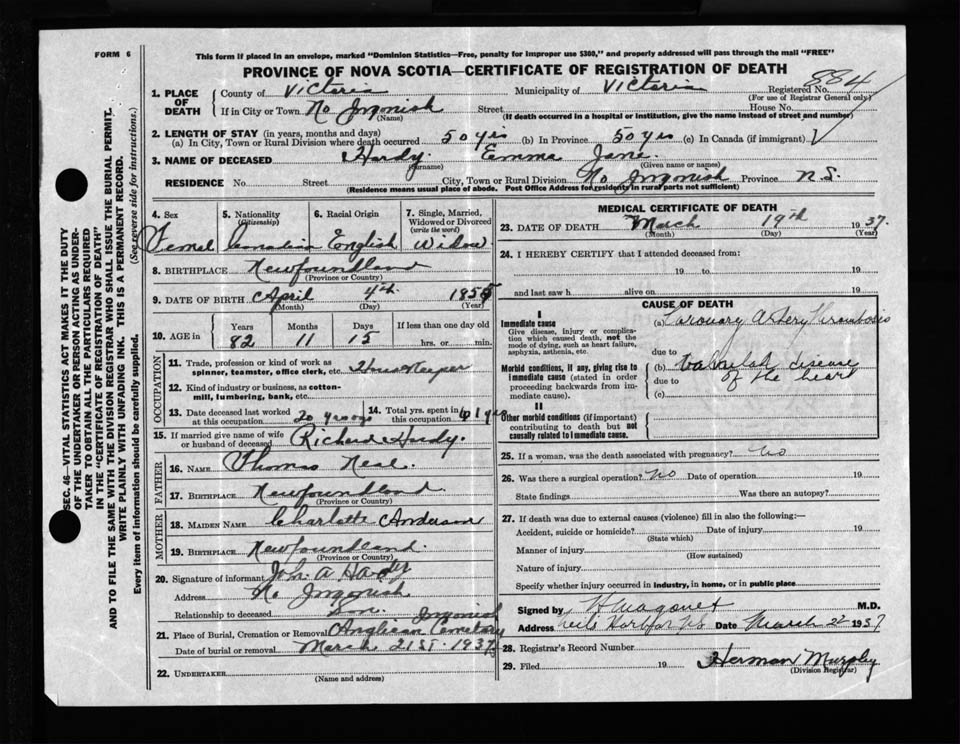 FORM 6
This form if placed in an envelope, marked "Dominion Statistics—Free, penalty for improper use $300," and properly addressed will pass through the mail "FREE"
PROVINCE OF NOVA SCOTIA—CERTIFICATE OF REGISTRATION OF DEATH
884
1. PLACE OF DEATH
County of Victoria Municipality of Victoria Registered No.
(For use of Registrar General only)
If in City or Town No Ingonish Street House No.
(Name) (If death occurred in a hospital or institution, give the name instead of street and number)
2. LENGTH OF STAY (in years, months and days)
(a) In City, Town or Rural Division where death occurred 50 yrs (b) In Province 50 yrs (c) In Canada (if immigrant)
3. NAME OF DECEASED Hardy. Emma Jane.
(Surname) (Given name or names)
RESIDENCE No. Street City, Town or Rural Division No Ingonish Province N.S.
(Residence means usual place of abode. Post Office Address for residents in rural parts not sufficient)
4. Sex 5. Nationality 6. Racial Origin 7. Single, Married, Widowed or Divorced
(Citizenship) (write the word)
Femel Canadian English Widow
8. BIRTHPLACE Newfoundland
(Province or Country)
9. DATE OF BIRTH April 4th. 1855
(Month) (Day) (Year)
10. AGE in Years Months Days If less than one day old
82 11 15 hrs. or min.
OCCUPATION
11. Trade, profession or kind of work as spinner, teamster, office clerk, etc. House Keeper
12. Kind of industry or business, as cotton-mill, lumbering, bank, etc.
13. Date deceased last worked at this occupation 20 years ago
14. Total yrs. spent in this occupation 41 yrs
15. If married give name of wife or husband of deceased Richard Hardy.
FATHER
16. NAME Thomas Neal.
17. BIRTHPLACE Newfoundland.
(Province or Country)
MOTHER
18. MAIDEN NAME Charlotte Anderson
19. BIRTHPLACE Newfoundland.
(Province or Country)
20. Signature of informant John A Hardy
Address No Ingonish
Relationship to deceased Son.
21. Place of Burial, Cremation or Removal Ingonish Anglican Cemetary
Date of burial or removal March 21st. 1937
22. UNDERTAKER
(Name and address)
MEDICAL CERTIFICATE OF DEATH
23. DATE OF DEATH March 19th 1937.
(Month) (Day) (Year)
24. I HEREBY CERTIFY that I attended deceased from:
19 to 19
and last saw h alive on 19
CAUSE OF DEATH
I
Immediate cause
Give disease, injury or complication which caused death, not the mode of dying, such as heart failure, asphyxia, asthenia, etc.
(a) Coronary Artery Thrombosis
due to
Morbid conditions, if any, giving rise to immediate cause (stated in order proceeding backwards from immediate cause).
(b) Valvular disease of the heart
due to
(c)
II
Other morbid conditions (if important) contributing to death but not causally related to immediate cause.
25. If a woman, was the death associated with pregnancy? No
26. Was there a surgical operation? No Date of operation 19
State findings Was there an autopsy?
27. If death was due to external causes (violence) fill in also the following:—
Accident, suicide or homicide? Date of injury 19
(State which)
Manner of injury
(How sustained)
Nature of injury
Specify whether injury occurred in industry, in home, or in public place
Signed by M.D.
Address Neils Harbor NS Date March 22 1937
28. Registrar's Record Number
29. Filed 19 Herman Murphy
(Division Registrar)
SEC. 46—VITAL STATISTICS ACT MAKES IT THE DUTY
OF THE UNDERTAKER OR PERSON ACTING AS UNDER-
TAKER TO OBTAIN ALL THE PARTICULARS REQUIRED
IN THE "CERTIFICATE OF REGISTRATION OF DEATH"
AND TO FILE THE SAME WITH THE DIVISION REGISTRAR WHO SHALL ISSUE THE BURIAL PERMIT.
WRITE PLAINLY WITH UNFADING INK. THIS IS A PERMANENT RECORD.
Every item of information should be carefully supplied. (See reverse side for instructions.)